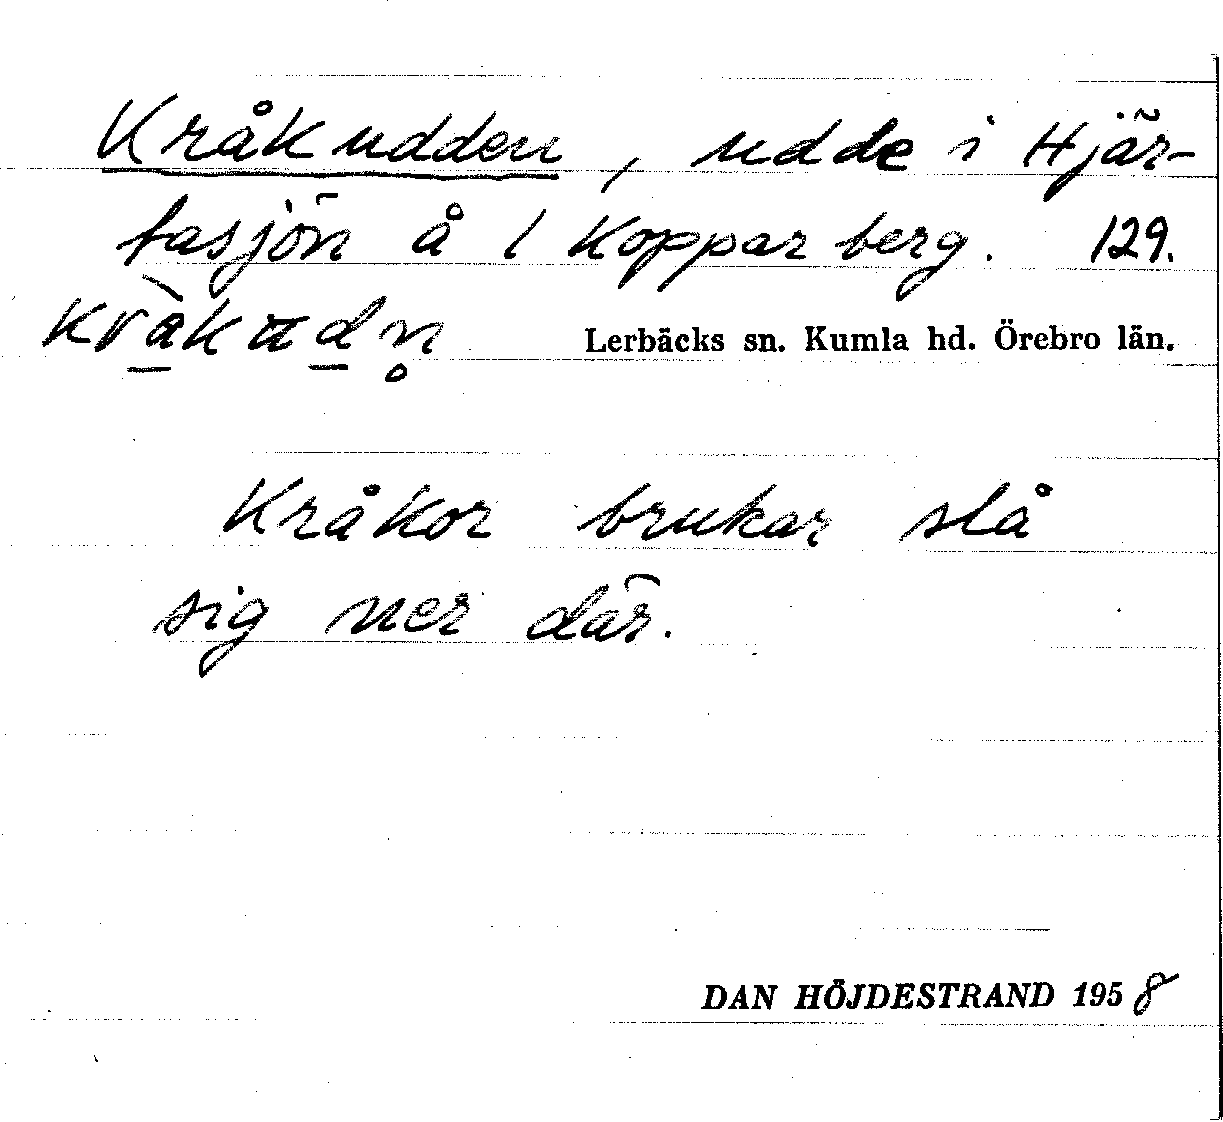 Kråkudden, udde i Hjär-
tasjön å 1 Kopparberg. 129.
Lerbäcks sn. Kumla hd. Örebro län.
Kråkor brukar slå
sig ner där.
DAN HÖJDESTRAND 1958